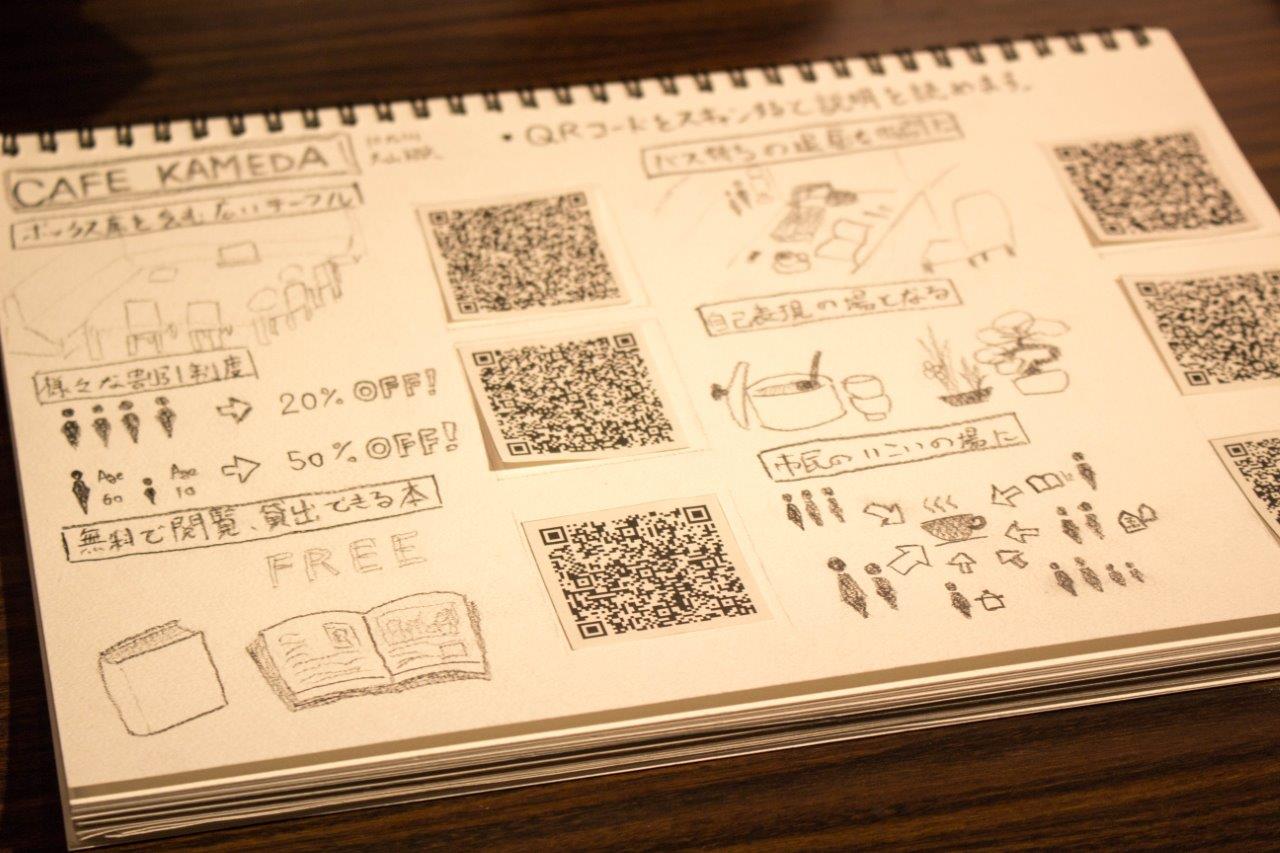 CAFE KAMEDA
・QRコードをスキャンして説明を読めます。
ボックス席を含む広いテーブル
様々な割引制度
20% OFF!
Age 60 Age 10
50% OFF!
無料で閲覧、貸出できる本
FREE
バス待ちの場所を
自己表現の場となる
市民のいこいの場に